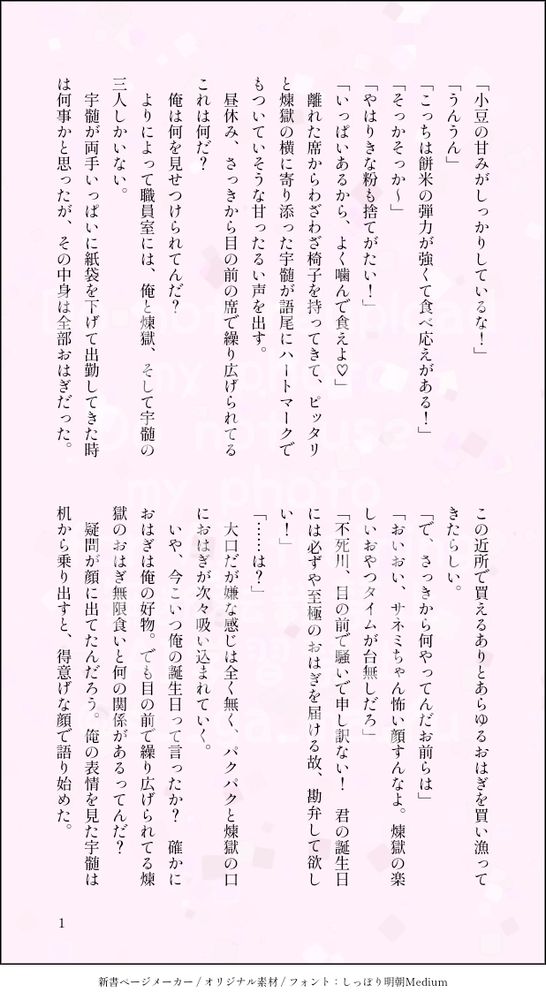 「小豆の甘みがしっかりしているな！」
「うんうん」
「こっちは餅米の弾力が強くて食べ応えがある！」
「そっかそっか〜」
「やはりきな粉も捨てがたい！」
「いっぱいあるから、よく噛んで食えよ♡」
　離れた席からわざわざ椅子を持ってきて、ピッタリ
と煉獄の横に寄り添った宇髄が語尾にハートマークで
もついていそうな甘ったるい声を出す。
　昼休み、さっきから目の前の席で繰り広げられてる
これは何だ？
　俺は何を見せつけられてんだ？
　よりによって職員室には、俺と煉獄、そして宇髄の
三人しかいない。
　宇髄が両手いっぱいに紙袋を下げて出勤してきた時
は何事かと思ったが、その中身は全部おはぎだった。
この近所で買えるありとあらゆるおはぎを買い漁って
きたらしい。
「で、さっきから何やってんだお前らは」
「おいおい、サネミちゃん怖い顔すんなよ。煉獄の楽
しいおやつタイムが台無しだろ」
「不死川、目の前で騒いで申し訳ない！　君の誕生日
には必ずや至極のおはぎを届ける故、勘弁して欲し
い！」
「……は？」
　大口だが嫌な感じは全く無く、パクパクと煉獄の口
におはぎが次々吸い込まれていく。
　いや、今こいつ俺の誕生日って言ったか？　確かに
おはぎは俺の好物。でも目の前で繰り広げられてる煉
獄のおはぎ無限食いと何の関係があるってんだ？
　疑問が顔に出てたんだろう。俺の表情を見た宇髄は
机から乗り出すと、得意げな顔で語り始めた。
1
新書ページメーカー / オリジナル素材 / フォント：しっぽり明朝Medium
my photo
not usa
my photo